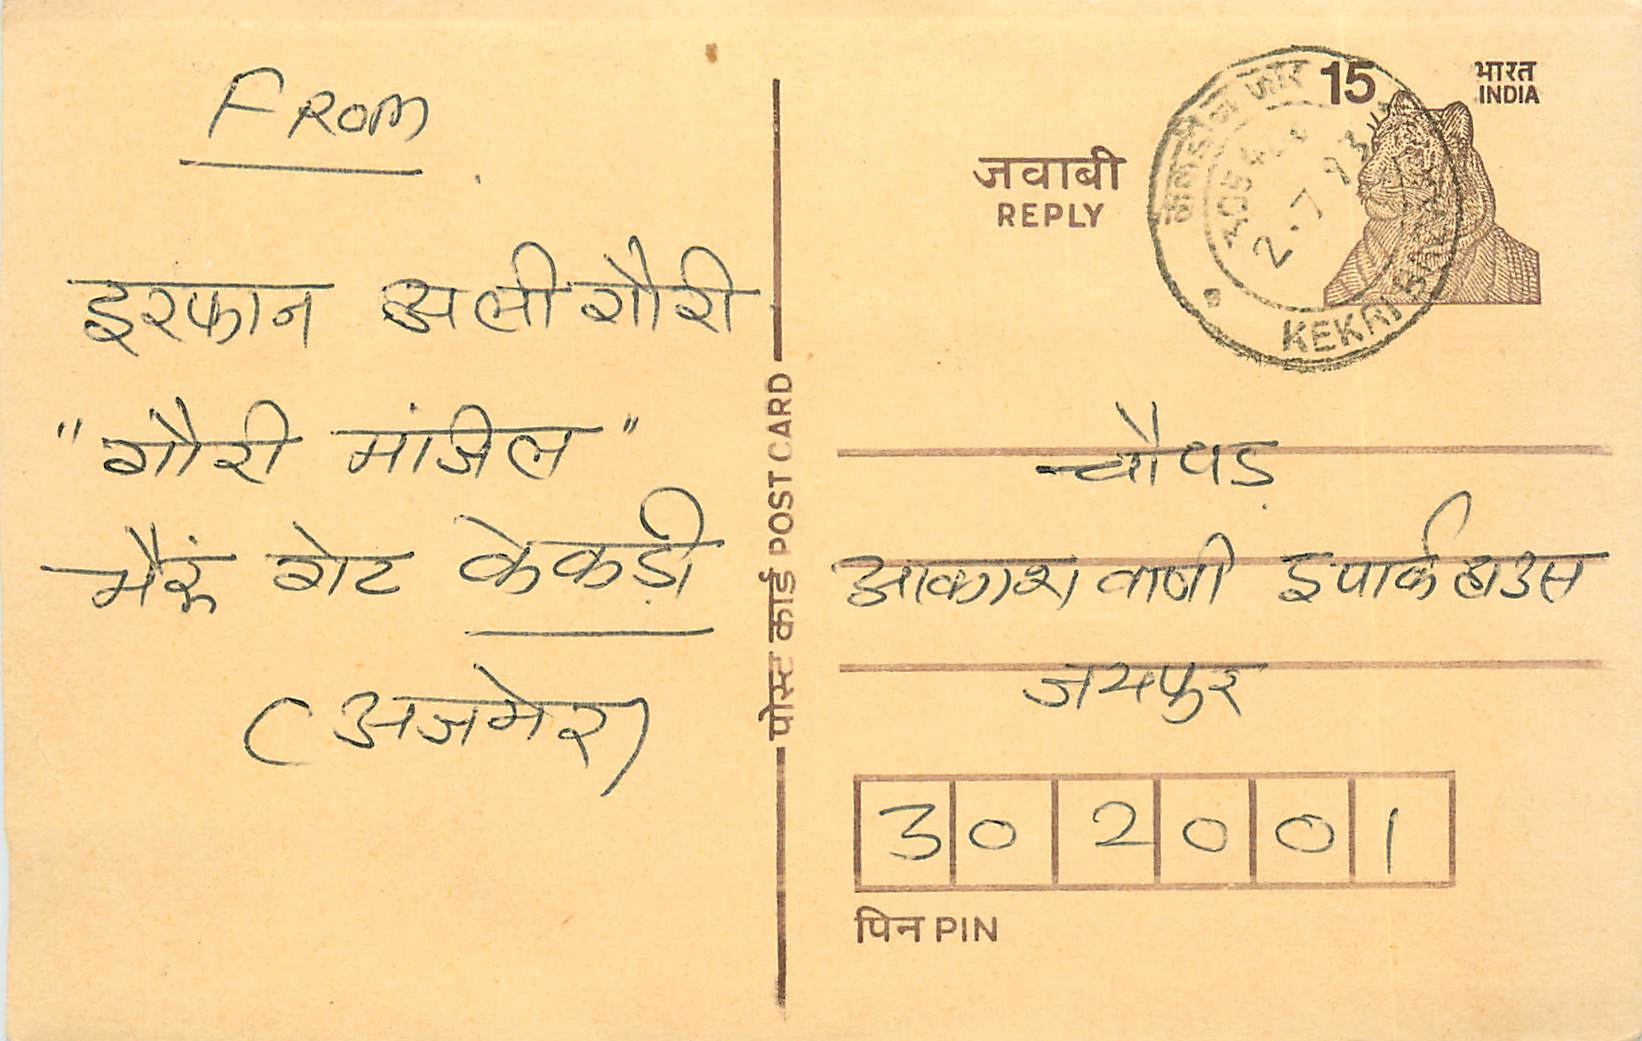 FROM
इरफान अली गौरी
"गौरी मंजिल"
भैरूं गेट केकड़ी
(अजमेर)
पोस्ट कार्ड POST CARD
15
भारत
INDIA
जवाबी
REPLY
2-7
KEKRI
चौपड़
आकाशवाणी इपार्क हाउस
जयपुर
302001
पिन PIN